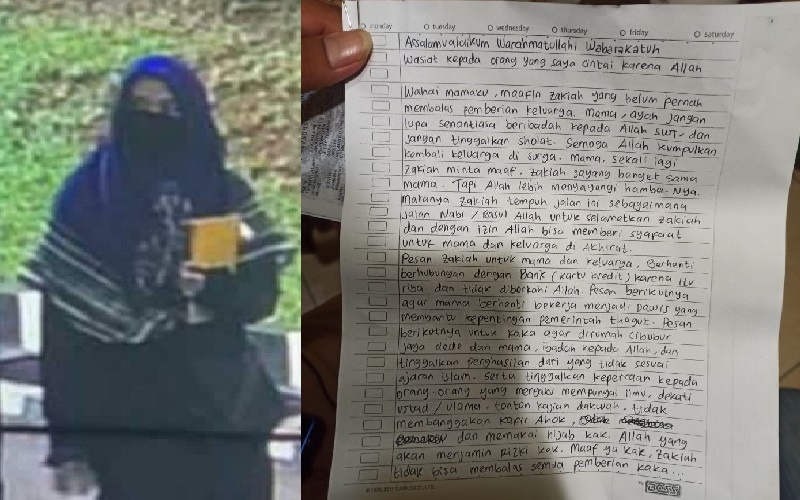 monday tuesday wednesday thursday friday saturday
Assalamualaikum Warahmatullahi Wabarakatuh
Wasiat kepada orang yang saya cintai karena Allah
Wahai mamaku, maafin zakiah yang belum pernah
membalas pemberian keluarga. Mama, ayah jangan
lupa senantiasa beribadah kepada Allah SWT. dan
jangan tinggalkan sholat. Semoga Allah kumpulkan
kembali keluarga di surga. Mama, sekali lagi
zakiah minta maaf, zakiah sayang banget sama
mama. Tapi Allah lebih menyayangi hamba-Nya.
makanya zakiah tempuh jalan ini sebagaimana
jalan Nabi / Rasul Allah untuk selametkan zakiah
dan dengan izin Allah bisa memberi syafaat
untuk mama dan keluarga di Akhirat.
Pesan zakiah untuk mama dan keluarga, berhenti
berhubungan dengan Bank (kartu credit) karena itu
riba dan tidak diberkahi Allah. Pesan berikutnya
agar mama berhenti bekerja menjadi Dawis yang
membantu kepentingan pemerintah thogut. Pesan
berikutnya untuk kaka agar dirumah cibubur
jaga dede dan mama, ibadah kepada Allah, dan
tinggalkan penghasilan dari yang tidak sesuai
ajaran islam. serta tinggalkan kepercaan kepada
orang-orang yang mengaku mempunyai ilmu, dekati
ustad / ulama, tonton kajian dakwah, tidak
membanggakan kafir Ahok,
dan memakai hijab kak. Allah yang
akan menjamin rizki kak. Maaf ya kak, zakiah
tidak bisa membalas semua pemberian kaka...
by BOSS